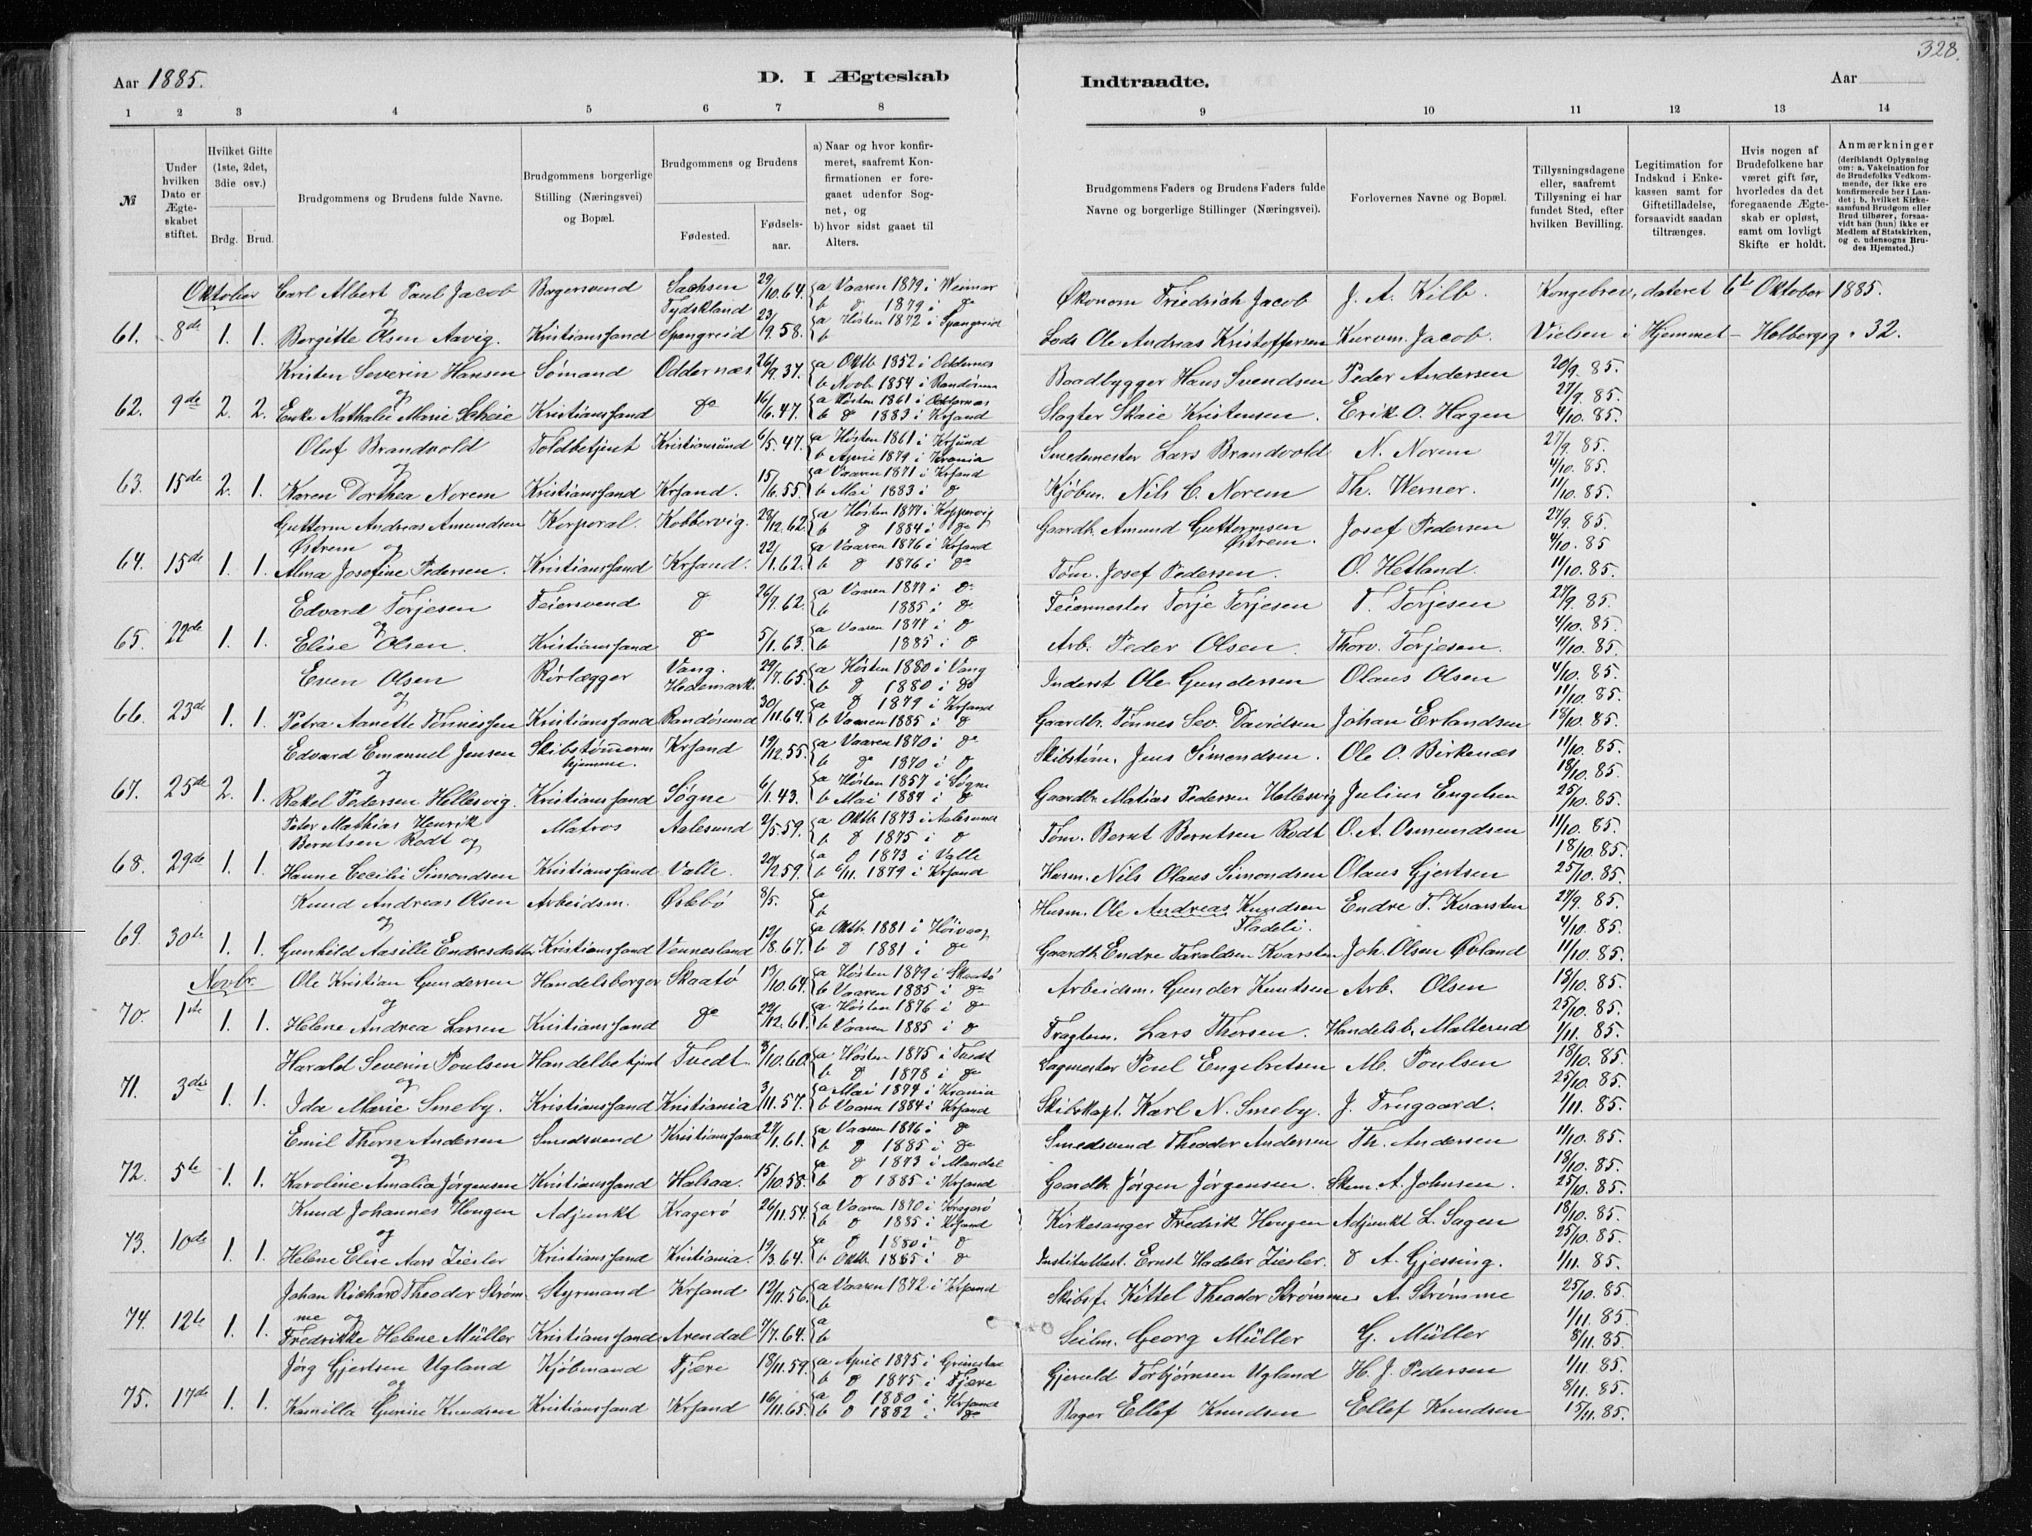 328.
Aar 1885.
D. I Ægteskab
Indtraadte.
Aar
1 2 3 4 5 6 7 8 9 10 11 12 13 14
№
Under hvilken Dato er Ægteskabet stiftet.
Hvilket Gifte (1ste, 2det, 3die osv.)
Brdg. Brud.
Brudgommens og Brudens fulde Navne.
Brudgommens borgerlige Stilling (Næringsvei) og Bopæl.
Brudgommens og Brudens
Fødested. Fødselsaar.
a) Naar og hvor konfirmeret, saafremt Konfirmationen er foregaaet udenfor Sognet, og
b) hvor sidst gaaet til Alters.
Brudgommens Faders og Brudens Faders fulde Navne og borgerlige Stillinger (Næringsvei).
Forlovernes Navne og Bopæl.
Tillysningsdagene eller, saafremt Tillysning ei har fundet Sted, efter hvilken Bevilling.
Legitimation for Indskud i Enkekassen samt for Giftetilladelse, forsaavidt saadan tiltrænges.
Hvis nogen af Brudefolkene har været gift før, hvorledes da det foregaaende Ægteskab er opløst, samt om lovligt Skifte er holdt.
Anmærkninger
(deriblandt Oplysning om: a. Vakcination for de Brudefolks Vedkommende, der ikke ere konfirmerede her i Landet; b. hvilket Kirkesamfund Brudgom eller Brud tilhører, forsaavidt han (hun) ikke er Medlem af Statskirken, og c. udensogns Brudes Hjemsted.)
Oktober Carl Albert Paul Jacob Bagersvend Sachsen Tydskland 29/10.64. a Vaaren 1879 i Weimar b d 1879 i do Økonom Friedrich Jacob J. A. Kilb. Kongebrev, dateret 6te Oktober 1885.
og
61. 8de 1. 1. Bergitte Olsen Aavig. Kristianssand Spangereid 23/9.58. a Høsten 1872 i Spangreid b Lods Ole Andreas Kristoffersen Jacob. Vielsen i Hjemmet - Holbergsg. 32.
Kristen Severin Hansen Sømand Oddernæs 26/9.37. a Oktb 1852 i Oddernæs b Novb. 1854 i Randøsund Baadbygger Hans Svendsen Peder Andersen 20/9. 85.
og 27/9. 85.
62. 9de 2. 2. Enke Nathalie Marie Scheie Kristianssand do 16/6.47. a Høsten 1861 i Oddernæs b d 1883 i Krsand Slagter Skaie Kristensen. Erik O. Hagen 4/10. 85.
Oluf Brandvold Toldbetjent Kristianssund 6/5.47. a Høsten 1861 i Krsund b April 1879 i Krania Smedemester Lars Brandvold N. Norem 27/9. 85.
og 4/10. 85.
63. 15de 2. 1. Karen Dorthea Norem Kristianssand Krsand. 15/6.55. a Vaaren 1871 i Krsand b Mai 1883 i d Kjøbm. Nils C. Norem Th. Werner. 11/10. 85.
Guttorm Andreas Amundsen Korporal. Kobbervig. 28/12.62. a Høsten 1877 i Koppervig b d 1884 i do Gaardb. Amund Guttormsen Østrem. Josef Pedersen 27/9. 85.
Østrem og 4/10. 85
64. 15de 1. 1. Alma Josefine Pedersen. Kristianssand Krsand. 22/1.62. a Vaaren 1876 i Krsand b d 1876 i do Tøm. Josef Pedersen. O. Hetland. 11/10. 85.
Edvard Torjesen Feiersvend d 26/7.62. a Vaaren 1879 i do b 1885 i do Feiermester Torje Torjesen T. Torjesen 27/9. 85.
og 4/10. 85.
65. 22de 1. 1. Elise Olsen. Kristianssand do 5/1.63. a Vaaren 1877 i d b 1885 i d Arb. Peder Olsen. Thorv. Torjesen. 11/10. 85.
Even Olsen Rørlægger Vang. Hedemark. 29/7.65. a Høsten 1880 i Vang b d 1880 i do Inderst Ole Gundersen Olaus Olsen 4/10. 85.
og 11/10. 85.
66. 23de 1. 1. Petra Annette Tønnessen Kristianssand Randøsund 30/11.64. a d 1879 i Krsand b Vaaren 1885 i d Gaardb. Tønnes Sev. Davidsen Johan Erlandsen 18/10. 85.
Edvard Emanuel Jensen Skibstømmerm hjemme. Krsand 19/12.55. a Vaaren 1870 i do b do 1870 i d Skibstøm. Jens Simondsen. Ole O. Birkenæs 11/10. 85.
og 18/10. 85.
67. 25de 2. 1. Rakel Pedersen Hellesvig. Kristianssand Søgne 6/1.43. a Høsten 1857 i Søgne b Mai 1884 i d Gaardb. Matias Pedersen Hellesvig Julius Engelsen 25/10. 85.
Peter Mathias Henrik Matros Aalesund 2/5.59. a Oktb 1873 i Aalesund b d 1875 i d Tøm. Bernt Berntsen Rødt O. A. Osmundsen 11/10. 85.
Berntsen Rødt og 18/10. 85.
68. 29de 1. 1. Hanne Cecilie Simondsen Kristianssand Valle. 20/2.59. a d 1873 i Valle b 6/11. 1879 i Krsand Husm. Nils Olaus Simondsen Olaus Gjertsen 25/10. 85.
Knud Andreas Olsen Arbeidsm. Øslebø 8/5. a b Husm. Ole Andreas Knudsen Fladeli. Endre T. Kvarsten 27/9. 85.
og 4/10. 85.
69. 30te 1. 1. Gunhild Aasille Endresdatter Kristianssand Vennesland 12/8.67. a Oktb. 1881 i Høivaag b d 1881 i do Gaardb Endre Taraldsen Kvarsten Joh. Olsen Øvland 11/10. 85.
Novbr. Ole Kristian Gundersen Handelsborger Skaatø 13/10.64. a Høsten 1879 i Skaatø b Vaaren 1885 i do Arbeidsm. Gunder Knutsen Arb. Olsen 13/10. 85.
og 25/10. 85.
70 1ste 1. 1. Helene Andrea Larsen Kristianssand do 22/12.61. a Høsten 1876 i do b Vaaren 1885 i d Fragtem. Lars Thorsen. Handelsb. Malterud 1/11. 85.
Harald Severin Poulsen Handelbetjent Tvedt. 3/10.60. a Høsten 1875 i Tvedt b d 1878 i do Sagmester Poul Engebretsen M. Poulsen 18/10. 85.
og 25/10. 85.
71. 3die 1. 1. Ida Marie Smeby. Kristianssand Kristiania 3/11.57. a Mai 1874 i Krania b Vaaren 1884 i Krsand Skibskapt. Karl N. Smeby. J. Frugaard. 1/11. 85.
Emil Thorn Andersen Smedsvend Kristianssand 27/1.61. a Vaaren 1876 i do b d 1885 i do Smedsvend Theodor Andersen Th. Andersen 11/10. 85.
og 18/10. 85.
72. 5te 1. 1. Karoline Amalia Jørgensen Kristianssand Halsaa. 15/10.58. a d 1873 i Mandal b d 1885 i Krsand Gaardb. Jørgen Jørgensen. A. Johnsen. 25/10. 85.
Knud Johannes Hougen Adjunkt Kragerø 26/11.54. a Vaaren 1870 i Kragerø b d 1885 i Krsand Kirkesanger Fredrik Hougen Adjunkt L. Sagen 18/10. 85.
og 25/10. 85.
73. 10de 1. 1. Helene Elise Aars Ziesler Kristianssand Kristiania. 19/3.64. a d 1880 i d b Oktb. 1885 i do Institutbest. Ernst Hadeler Ziesler. d A. Gjessing. 1/11. 85.
Johan Richard Theodor Strøm- Styrmand Krsand 12/11.56. a Vaaren 1872 i Krsand b Skibsf. Kittel Theodor Strømme A. Strømme 25/10. 85.
me og 1/11. 85.
74. 12te 1. 1. Fredrikke Helene Müller Kristianssand Arendal 7/7.64. a b Seilm. Georg Müller G. Müller 8/11. 85.
Jørg Gjertsen Ugland Kjøbmand Fjære 18/11.59. a April 1875 i Grimstad b d 1875 i Fjære Gjerulf Torbjørnsen Ugland H. J. Pedersen 1/11. 85.
og 8/11. 85.
75. 17de 1. 1. Kamilla Gurine Knudsen Kristianssand Krsand 16/11.65. a d 1880 i Krsand b d 1882 i do Bager Ellef Knudsen Ellef Knudsen 15/11. 85.